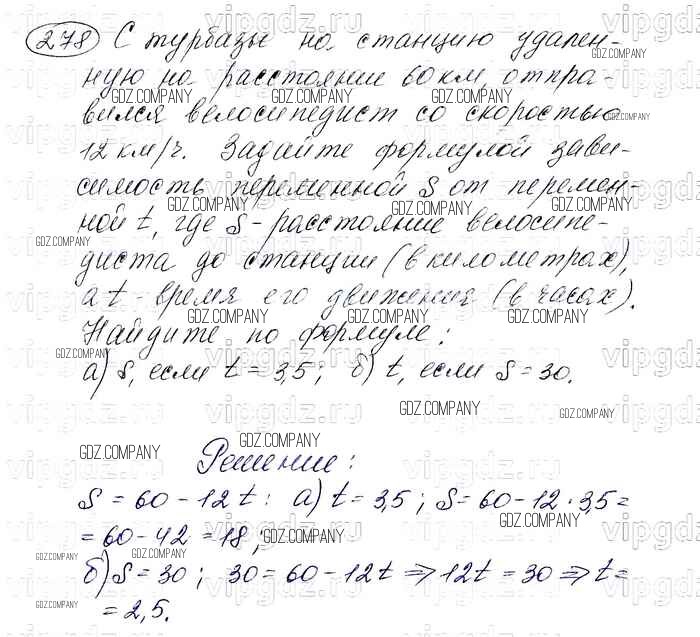 278 С турбазы на станцию удален-
ную на расстояние 60 км, отпра-
вился велосипедист со скоростью
12 км/ч. Задайте формулой зави-
симость переменной S от перемен-
ной t, где S - расстояние велосипе-
диста до станции (в километрах),
а t - время его движения (в часах).
Найдите по формуле:
а) S, если t = 3,5; б) t, если S = 30.
Решение:
S = 60 - 12 t: а) t = 3,5; S = 60 - 12 · 3,5 =
= 60 - 42 = 18;
б) S = 30; 30 = 60 - 12t ⇒ 12t = 30 ⇒ t =
= 2,5.